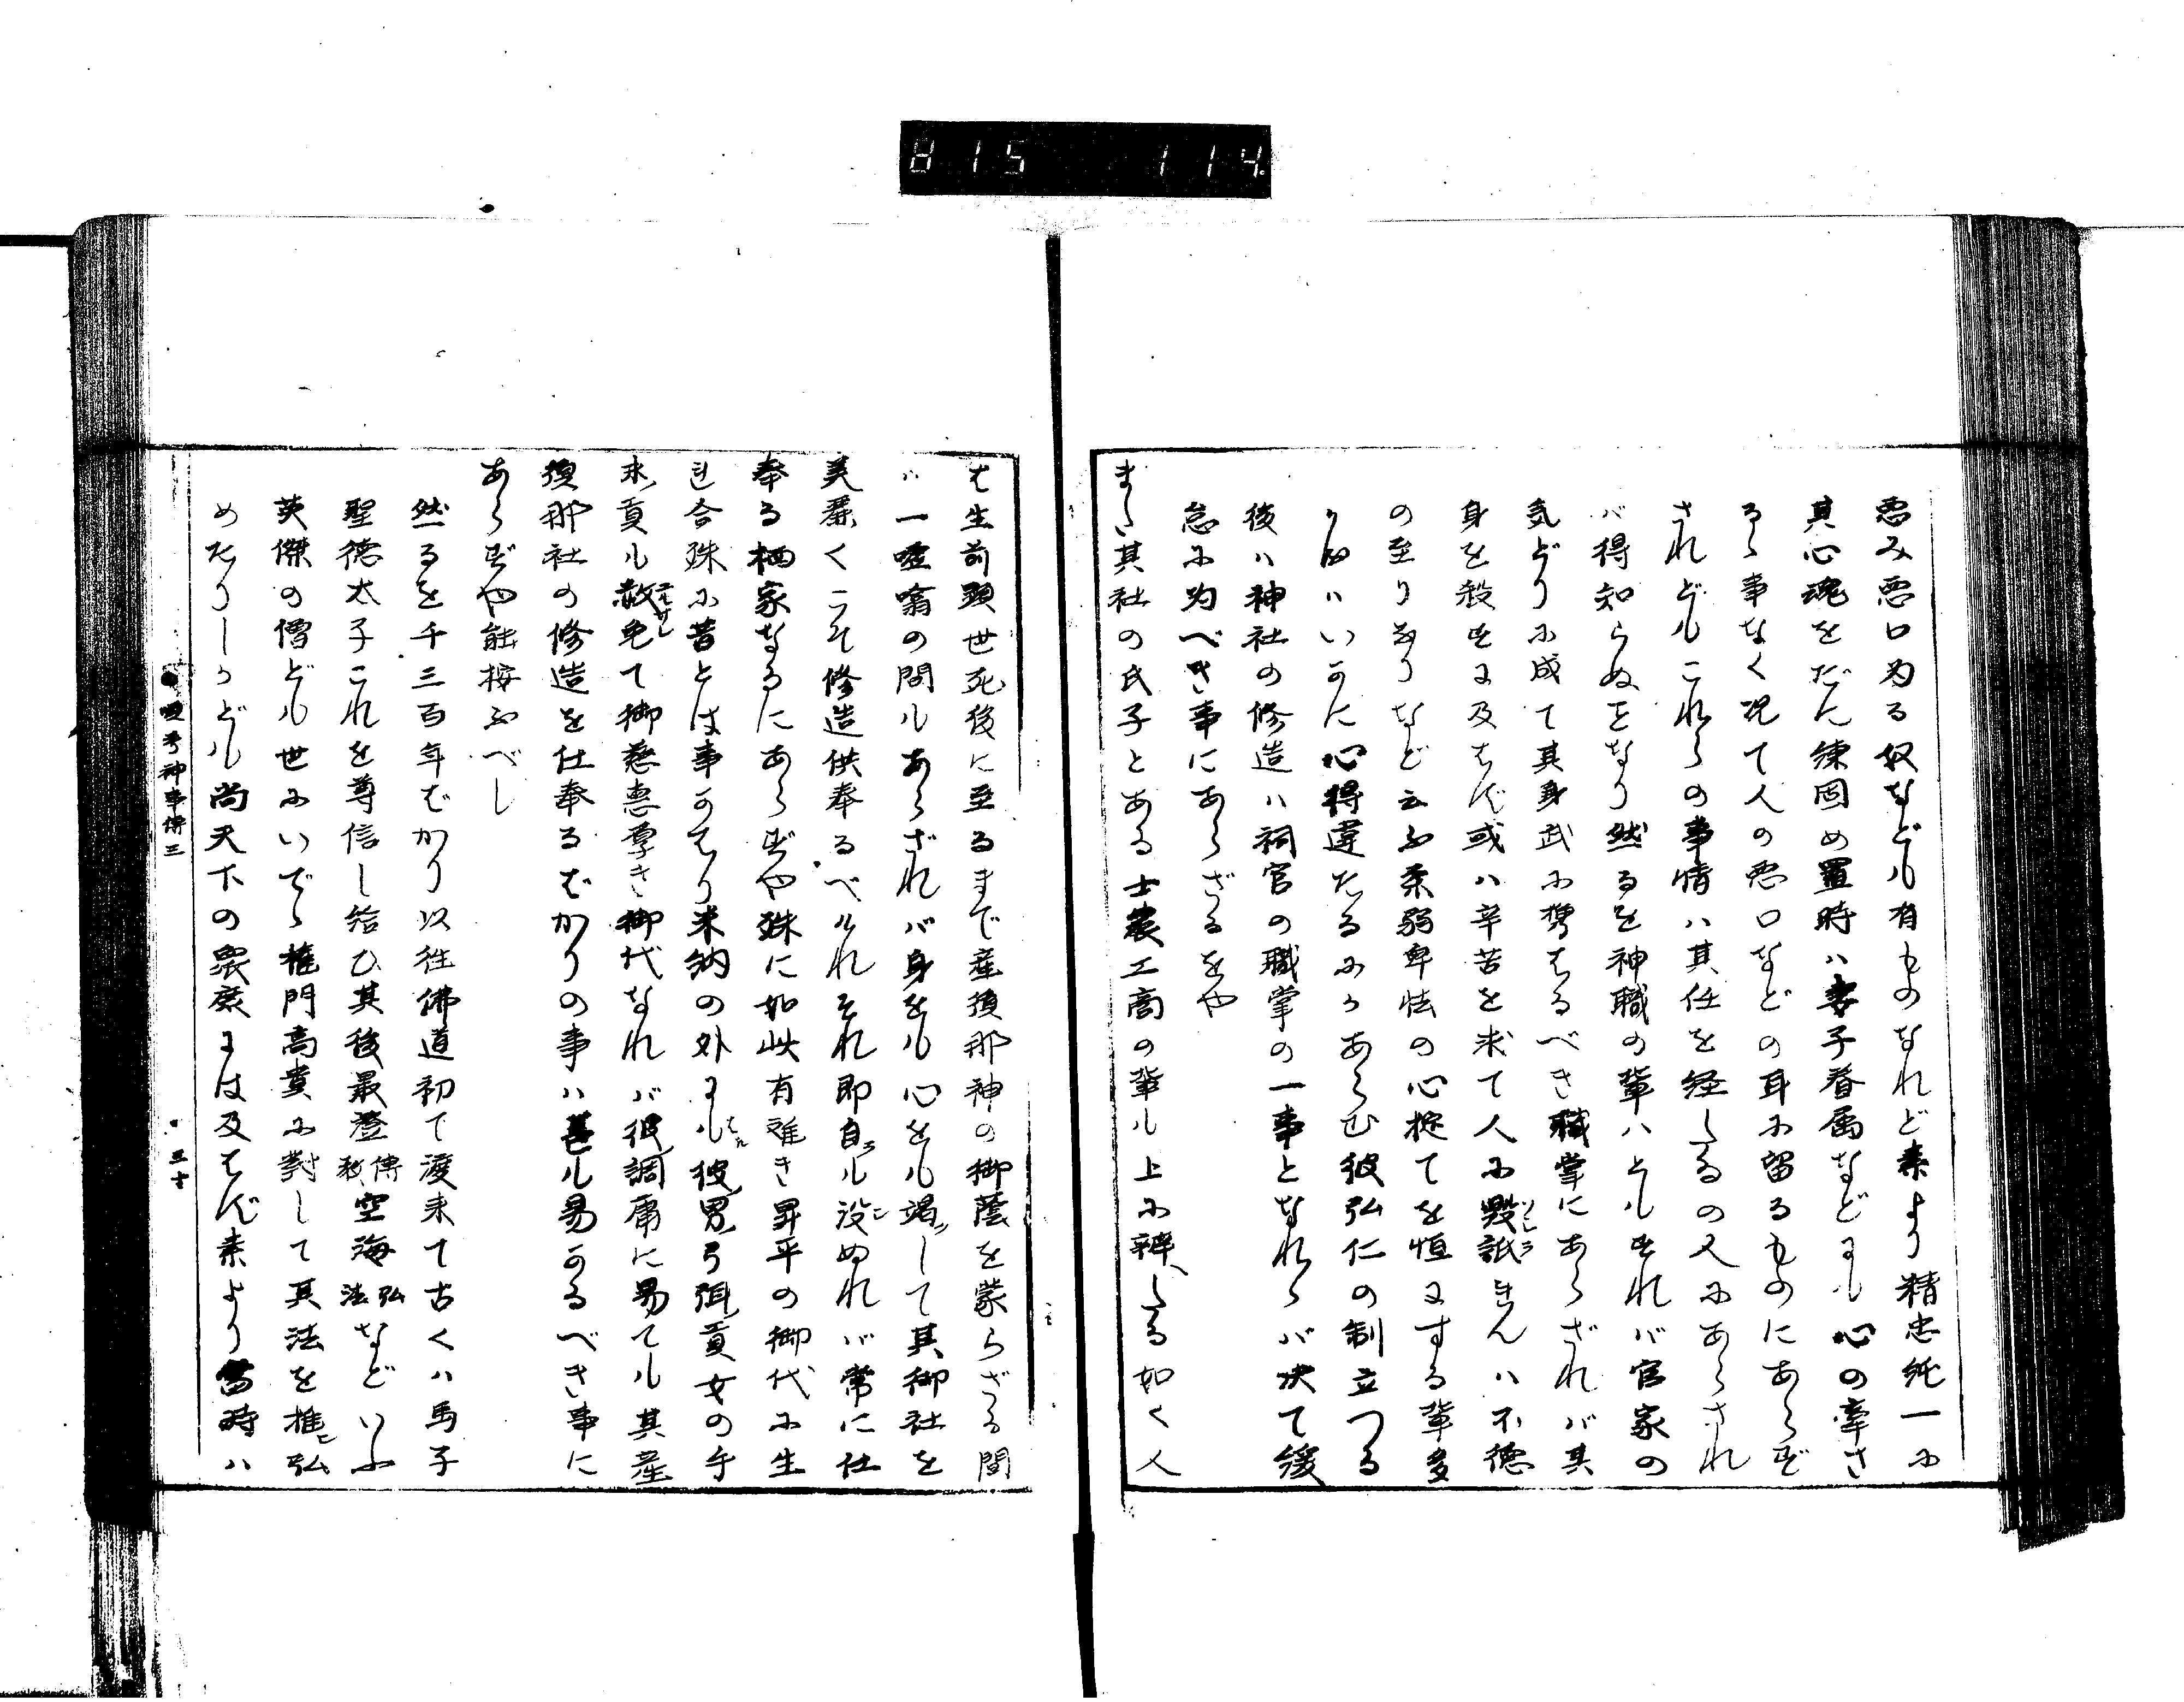 815 114.
悪み悪口為る奴なども有ものなれど素より精忠純一に
其心魂をだに練固め置時ハ妻子眷属などにも心の牽さ
るゝ事なく况て人の悪口などの耳に留るものにあらず
されどもこれらの事情ハ其任を経たるの人にあらされ
バ得知らぬをなり然るを神職の輩ハともすれバ官家の
気どりに成て其身武に携はるべき職掌にあらざれバ其
身を殺すに及はず或ハ辛苦を求て人に毀詆ソシラきんハ不徳
の至りなりなど云ふ柔弱卑怯の心掟てを恒にする輩多
かるハいかに心得違たるにかあらむ彼弘仁の制立つる
後ハ神社の修造ハ祠官の職掌の一事となれゝバ决て緩
怠に為べき事にあらざるをや
まゝ其社の氏子とある士農工商の輩ル上に辨へたる如く人
は生前顕世死後に至るまで産須那神の御蔭を蒙らざる間
バ一噓噏の間ルあらざれバ身をル心をル竭して其御社を
美麗くこそ修造供奉るべけれそれ即自ラル没ぬれバ常に仕
奉る栖家なるにあらずや殊に如此有難き昇平の御代に生
れ合殊に昔とは事かはり米納の外にル彼男弓弭貢女の手
末貢ル赦免て御慈恵厚き御代なれバ彼調庸に易てル其産
須那社の修造を仕奉るばかりの事ハ甚ル易かるべき事に
あらずや能按ふべし
然るを千三百年ばかり以往佛道初て渡来て古くハ馬子
聖徳太子これを尊信し給ひ其後最澄傳教空海弘法などいふ
英傑の僧どル世にいでゝ権門高貴に對して其法を推弘
めたりしかどル尚天下の衆庶には及はず素より當時ハ
神事傳三
三十